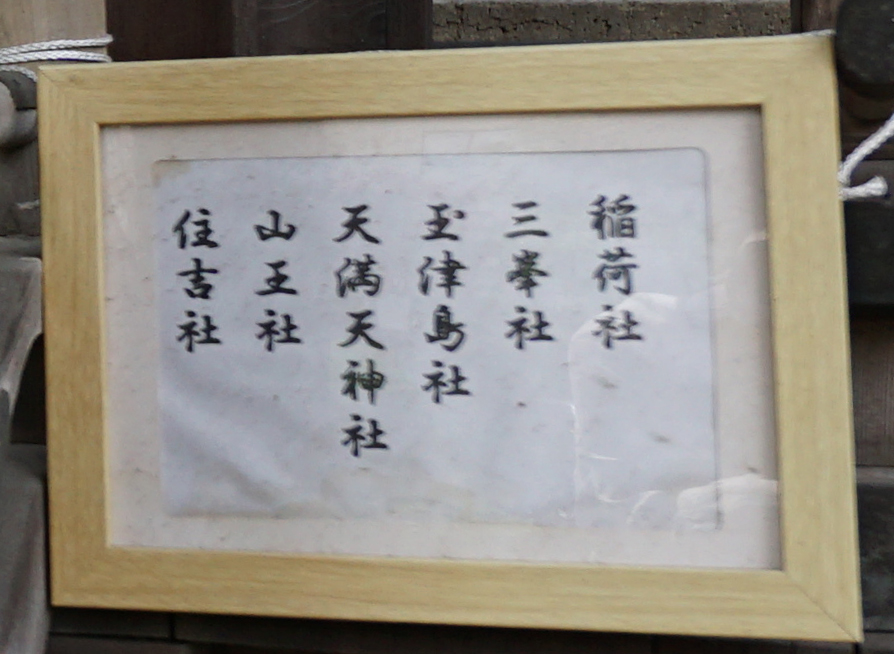 稲荷社
三峯社
玉津島社
天満天神社
山王社
住吉社